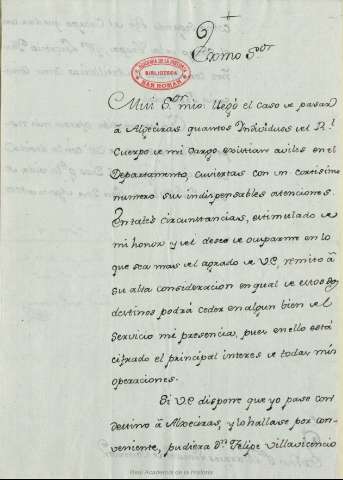 Exmo Sor
R. ACADEMIA DE LA HISTORIA
BIBLIOTECA
SAN ROMAN
Mui Sor. mio. llegó el caso de pasar
á Algeciras quantos Individuos del Rl.
Cuerpo de mi Cargo existian aviles en el
Departamento, cuviertas con un cortisimo
numero sus indispensables atenciones.
En tales circunstancias, estimulado de
mi honor y del deseo de ocuparme en lo
que sea mas del agrado de V.E, remito á
su alta consideracion en qual de estos dos
destinos podrá ceder en algun bien del
Servicio mi presencia, pues en ello está
cifrado el principal interes de todas mis
operaciones.
Si V.E dispone que yo pase con
destino á Algeciras, y lo hallase por con-
veniente, pudiera Dn. Felipe Villavicencio
Real Academia de la Historia